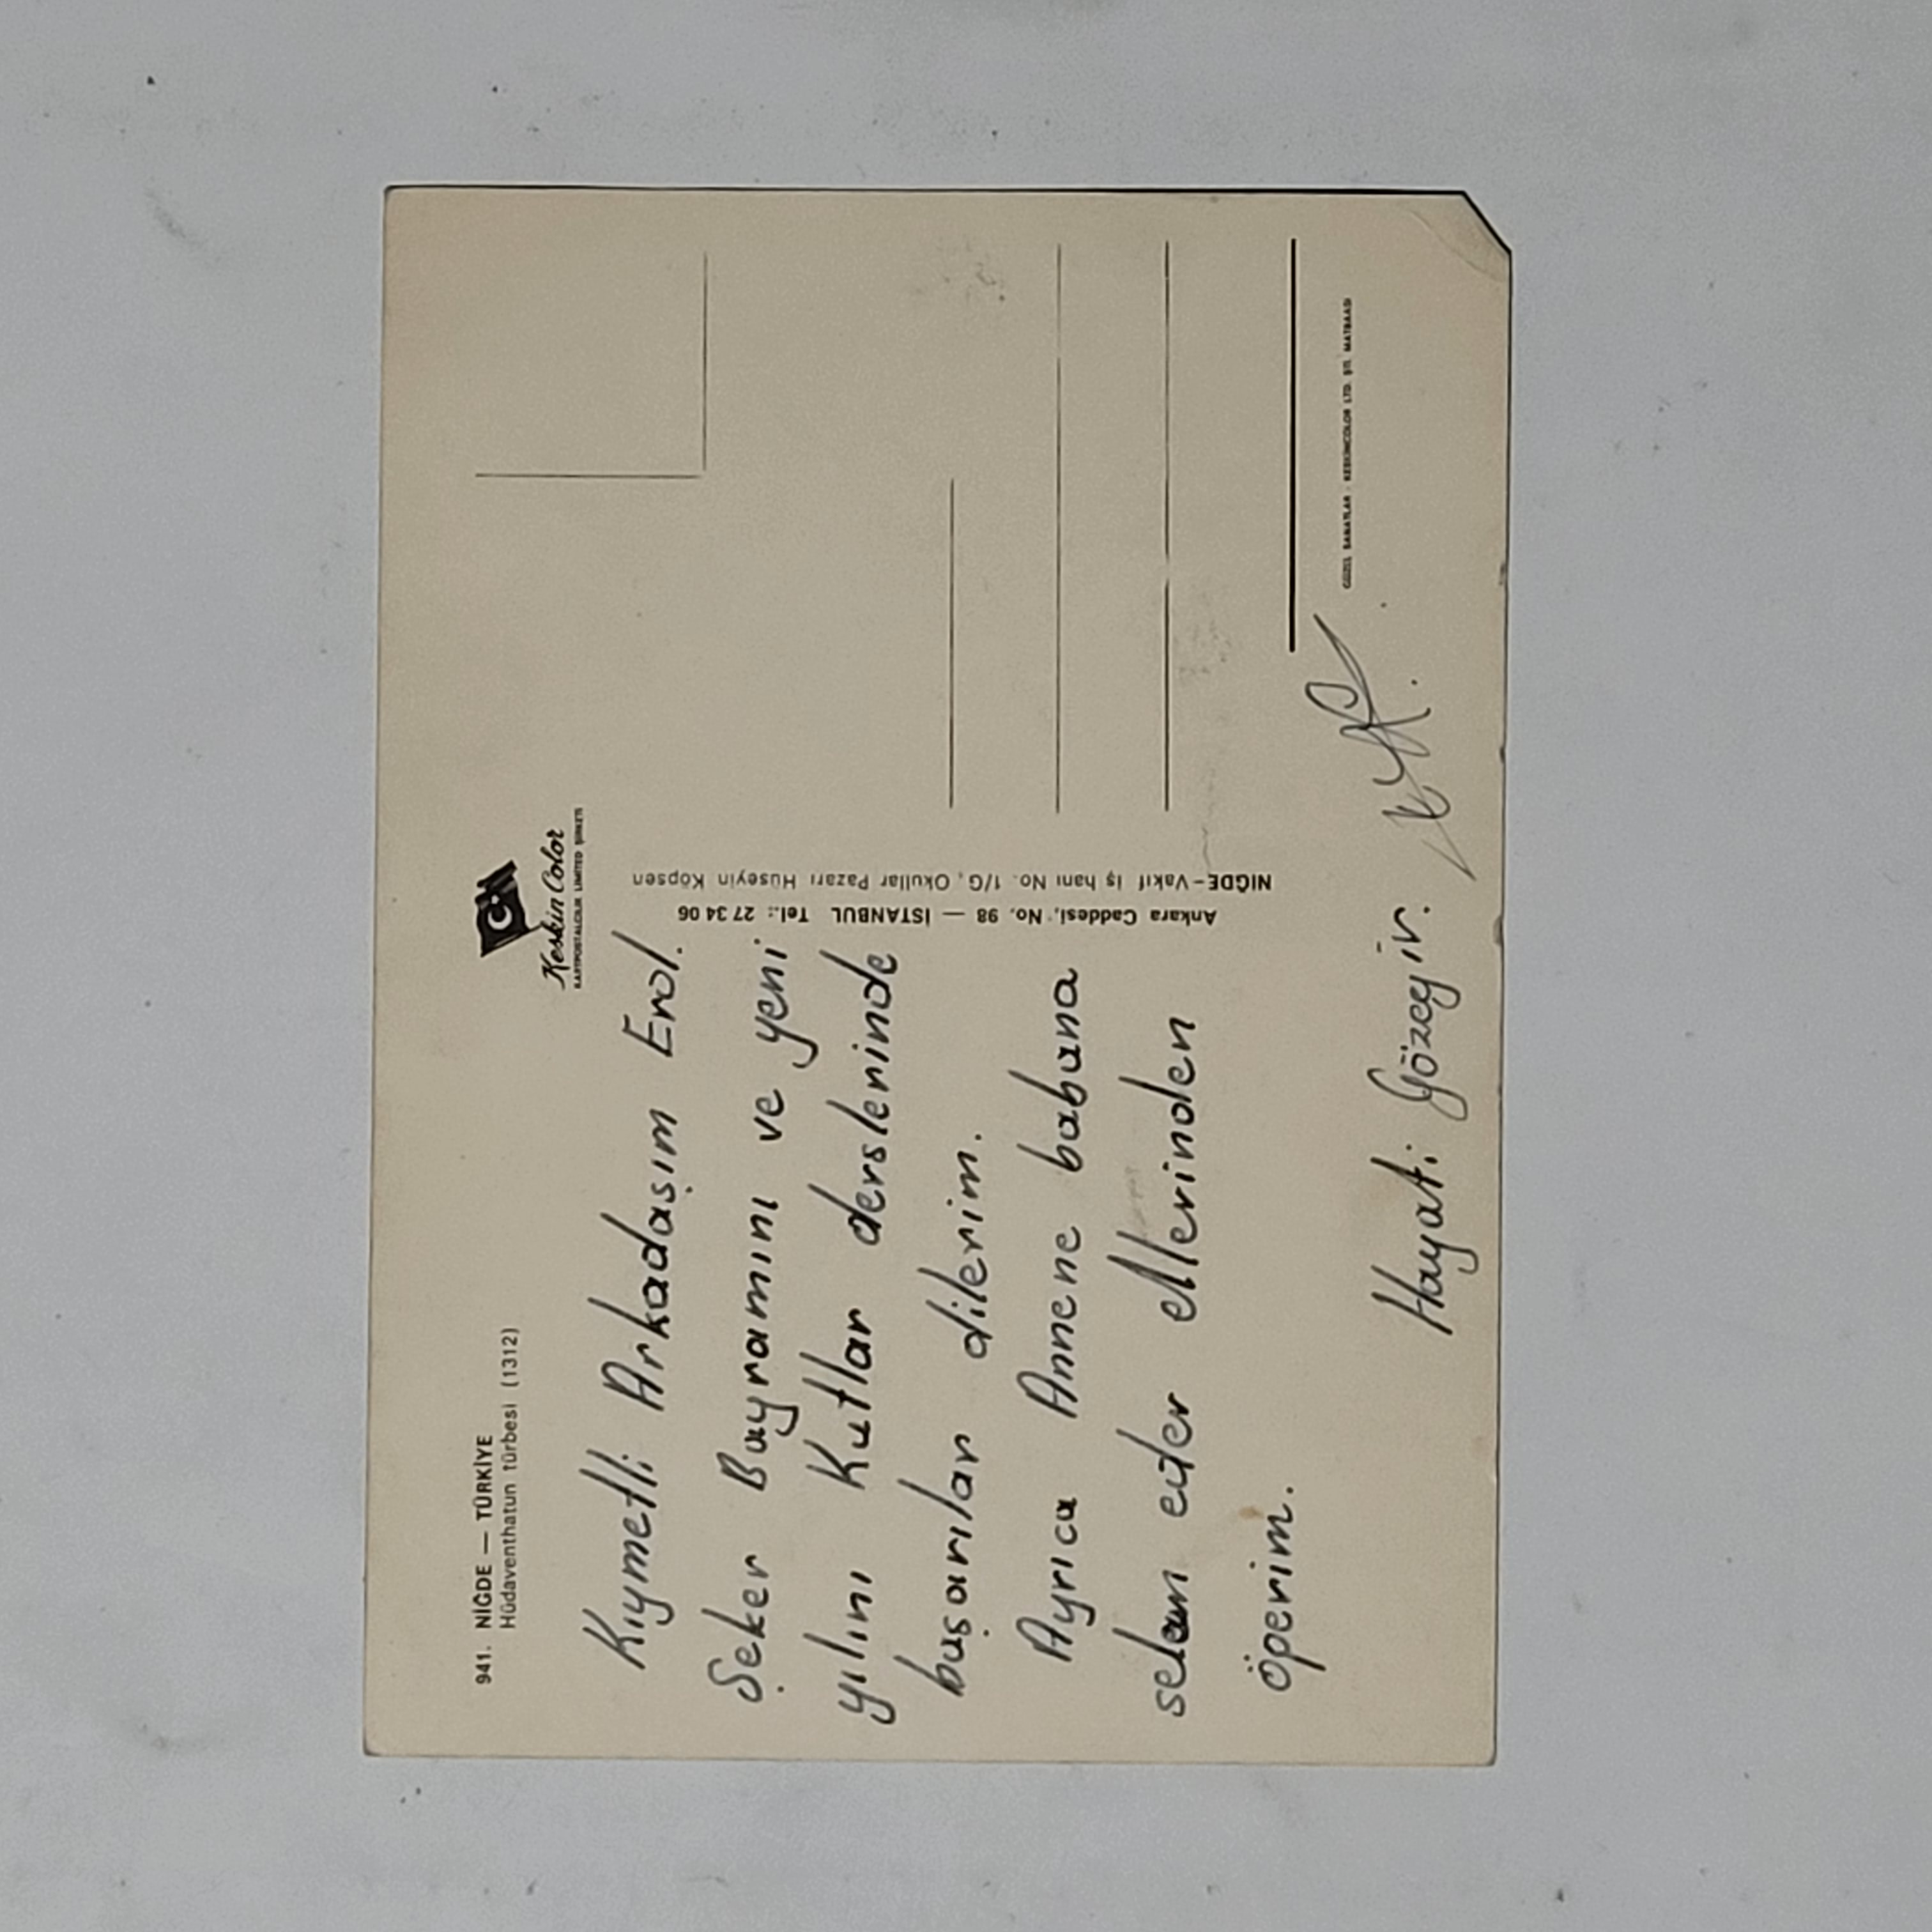 941. NİĞDE — TÜRKİYE
Hüdaventhatun türbesi (1312)
Keskin Color
KARTPOSTALCILIK LIMITED ŞİRKETİ
Kıymetli Arkadaşım Erol.
Şeker Bayramını ve yeni
yılını Kutlar derslerinde
başarılar dilerim.
Ayrıca Annene babana
selam eder ellerinden
öperim.
Hayati Gözeyir.
Ankara Caddesi, No. 98 — İSTANBUL Tel.: 27 34 06
NİĞDE-Vakıf iş hanı No. 1/G, Okullar Pazarı Hüseyin Köpsen
GÜZEL SANATLAR - KESKİNCOLOR LTD. ŞTİ. MATBAASI